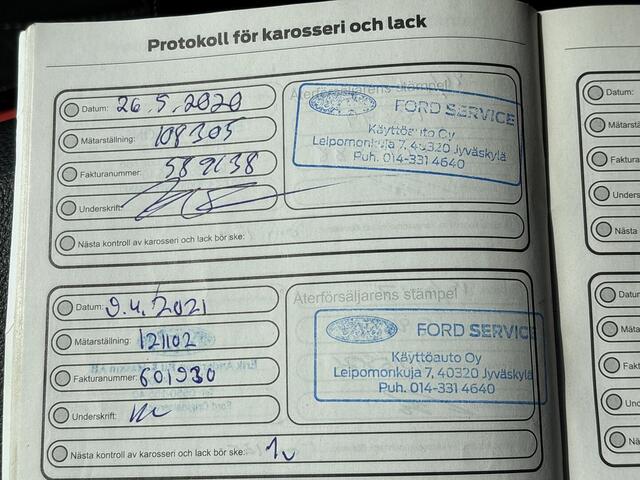 Protokoll för karosseri och lack
Datum: 26.5.2020
Mätarställning: 108305
Fakturanummer:
Underskrift:
Nästa kontroll av karosseri och lack bör ske:
Återförsäljarens stämpel
FORD SERVICE
Käyttöauto Oy
Leipomonkuja 7, 40320 Jyväskylä
Puh. 014-331 4640
Datum: 9.4.2021
Mätarställning: 121102
Fakturanummer: 601930
Underskrift:
Nästa kontroll av karosseri och lack bör ske: 1v
Återförsäljarens stämpel
FORD SERVICE
Käyttöauto Oy
Leipomonkuja 7, 40320 Jyväskylä
Puh. 014-331 4640
Datum:
Mätarstä
Faktura
Unders
Nästa
Datum
Mäta
Fakt
Und
Nä